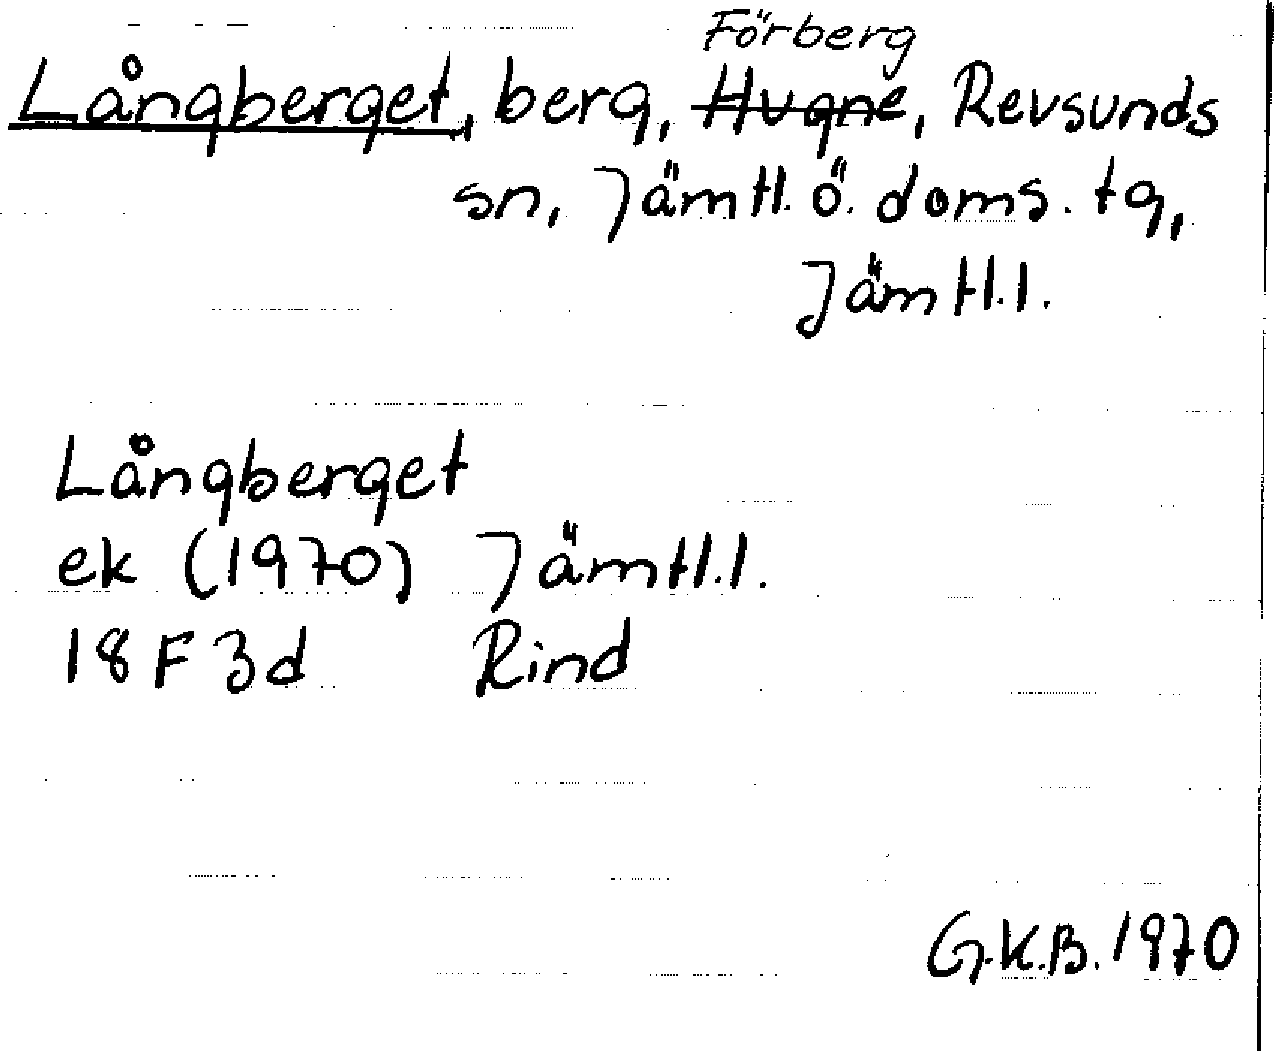 Förberg
Långberget, berg, Hugne, Revsunds
sn, Jämtl. ö. doms. tg,
Jämtl. l.
Långberget
ek (1970) Jämtl. l.
18 F 3d Rind
G.K.B. 1970